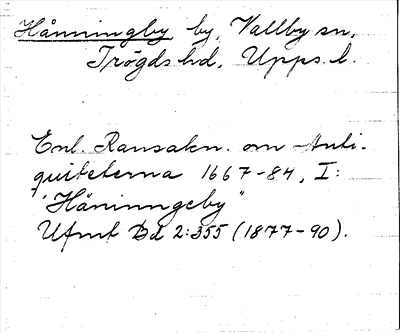 Hånningby by, Vallby sn,
Trögds hd, Upps. l.
Enl. Ransakn. om Anti-
quiteterna 1667-84, I:
"Håninngeby"
Ufmt Bd 2:355 (1877-90).